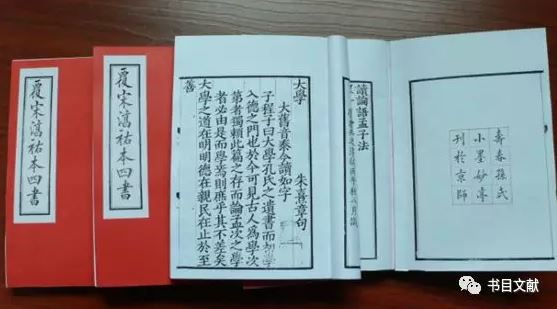 覆宋淳祐本四書
覆宋淳祐本四書
大學
朱熹章句
大舊音泰今讀如字
子程子曰大學孔氏之遺書而初學
入德之門也於今可見古人為學次
第者獨賴此篇之存而論孟次之學
者必由是而學焉則庶乎其不差矣
大學之道在明明德在親民在止於至
善
讀論語孟子法
壽春孫氏
小墨妙亭
刊於京師
书目文献